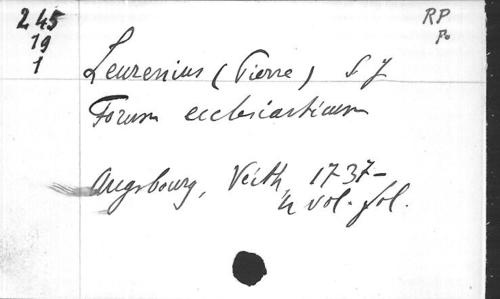 245
19
1
RP
Po
Leurenius (Pierre) S J
Forum ecclesiasticum
Augsbourg, Veith, 1737-
4 vol. fol.